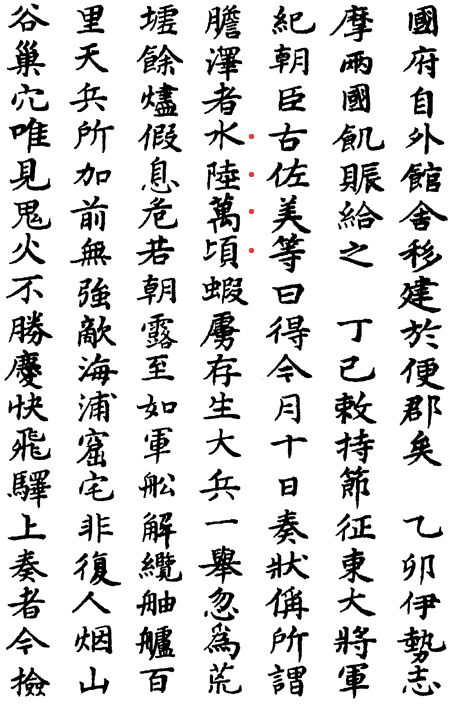 國府自外館舍移建於便郡矣　乙卯伊勢志
摩兩國飢賑給之　丁巳敕持節征東大將軍
紀朝臣古佐美等曰得今月十日奏狀偁所謂
膽澤者水陸萬頃蝦虜存生大兵一舉忽為荒
墟餘燼假息危若朝露至如軍舩解纜舳艫百
里天兵所加前無強敵海浦窟宅非復人烟山
谷巢穴唯見鬼火不勝慶快飛驛上奏者今撿